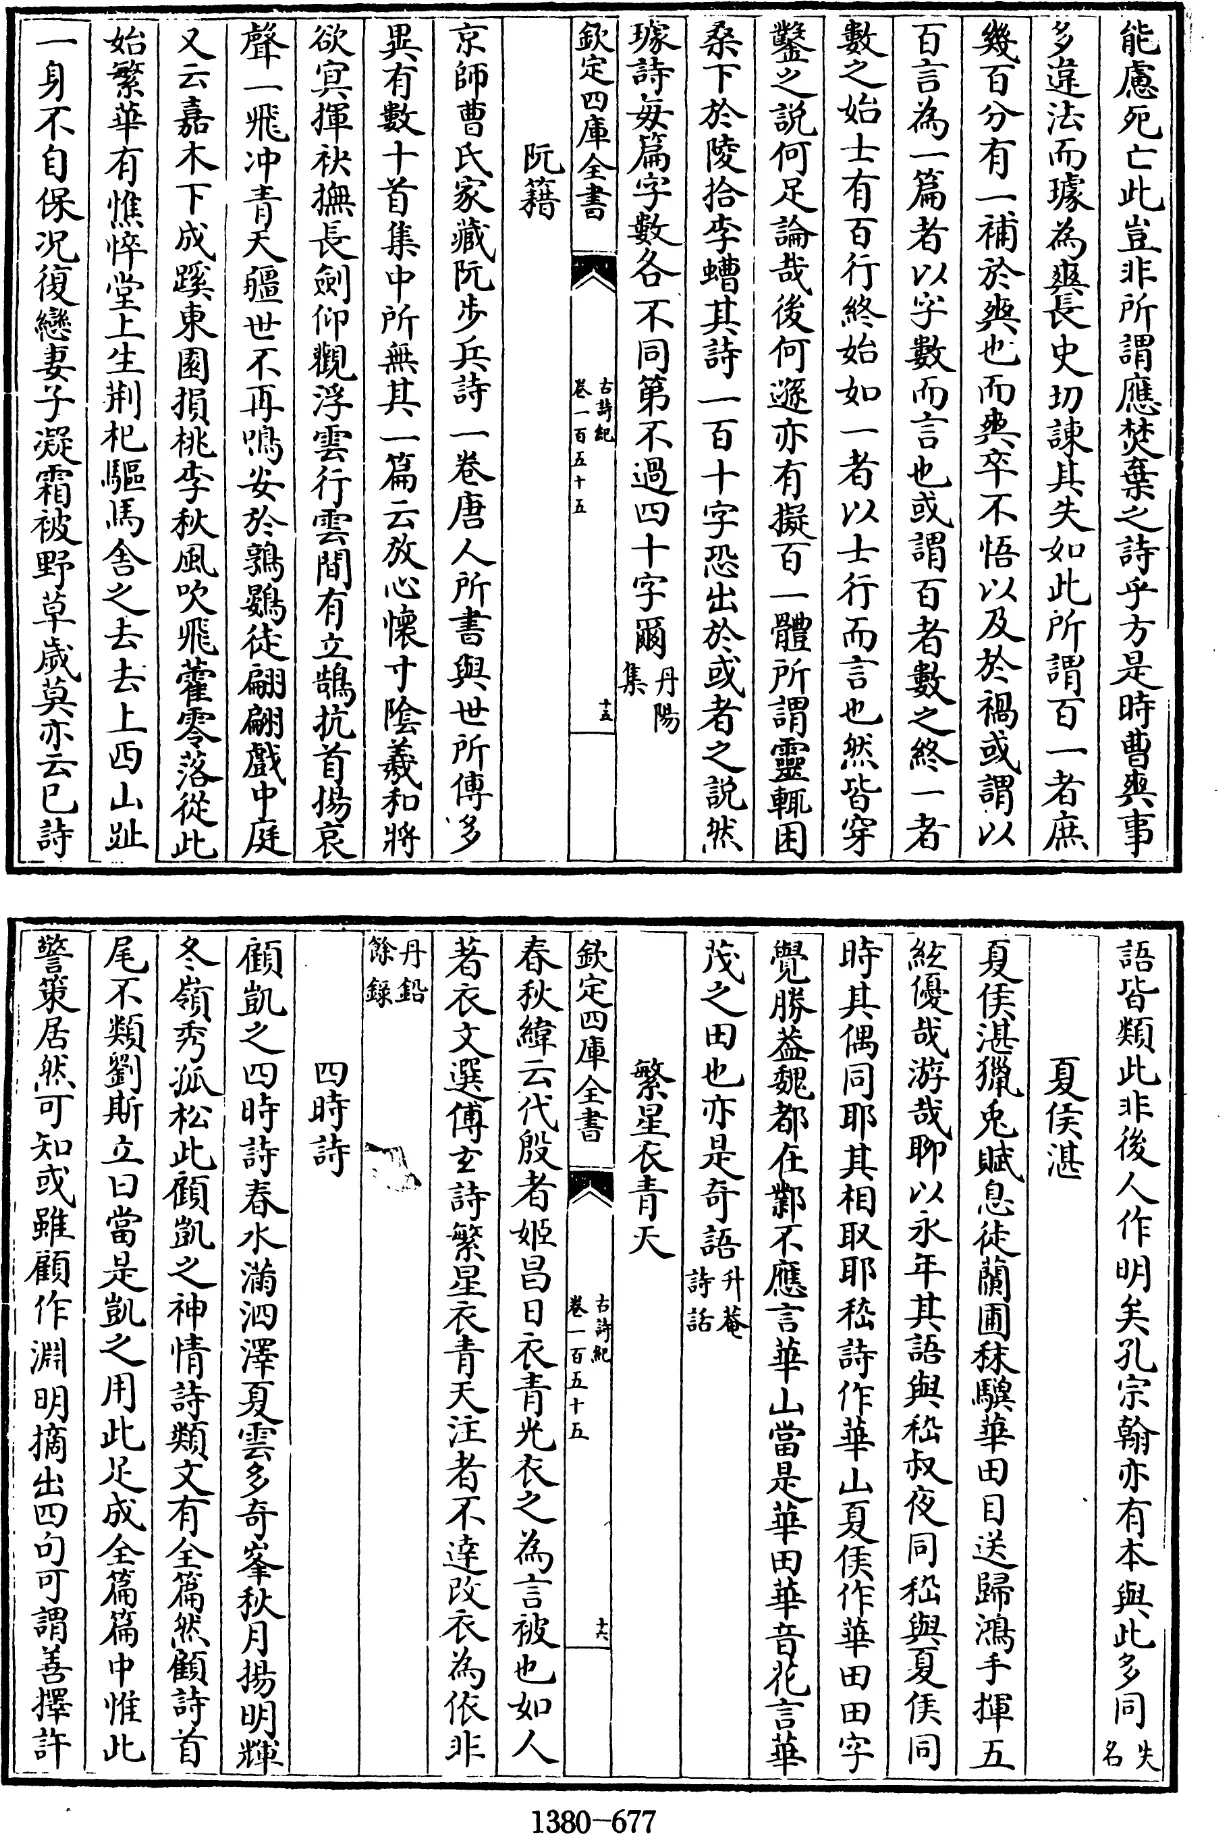 能慮死亡此豈非所謂應焚棄之詩乎方是時曹爽事
多違法而璩為爽長史切諫其失如此所謂百一者庶
幾百分有一補於爽也而爽卒不悟以及於禍或謂以
百言為一篇者以字數而言也或謂百者數之終一者
數之始士有百行終始如一者以士行而言也然皆穿
鑿之說何足論哉後何遜亦有擬百一體所謂靈輒困
桑下於陵拾李螬其詩一百十字恐出於或者之說然
璩詩每篇字數各不同第不過四十字爾丹陽集
欽定四庫全書
古詩紀
卷一百五十五
十五
阮籍
京師曹氏家藏阮步兵詩一卷唐人所書與世所傳多
異有數十首集中所無其一篇云放心懷寸陰羲和將
欲冥揮袂撫長劍仰觀浮雲行雲間有立鵠抗首揚哀
聲一飛冲青天疆世不再鳴安於鶉鷃徒翩翩戲中庭
又云嘉木下成蹊東園損桃李秋風吹飛藿零落從此
始繁華有憔悴堂上生荆杞驅馬舍之去去上西山趾
一身不自保况復戀妻子凝霜被野草歲莫亦云已詩
語皆類此非後人作明矣孔宗翰亦有本與此多同失名
夏侯湛
夏侯湛獵兎賦息徒蘭圃秣驥華田目送歸鴻手揮五
絃優哉游哉聊以永年其語與嵇叔夜同嵇與夏侯同
時其偶同耶其相取耶嵇詩作華山夏侯作華田田字
覺勝益魏都在鄴不應言華山當是華田華音花言華
茂之田也亦是奇語升菴詩話
繁星衣青天
欽定四庫全書
古詩紀
卷一百五十五
十六
春秋緯云代殷者姬昌日衣青光衣之為言被也如人
著衣文選傅玄詩繁星衣青天注者不達改衣為依非
丹鉛餘録
四時詩
顧凱之四時詩春水滿泗澤夏雲多奇峯秋月揚明輝
冬嶺秀孤松此顧凱之神情詩類文有全篇然顧詩首
尾不類劉斯立曰當是凱之用此足成全篇篇中惟此
警策居然可知或雖顧作淵明摘出四句可謂善擇許
1380-677